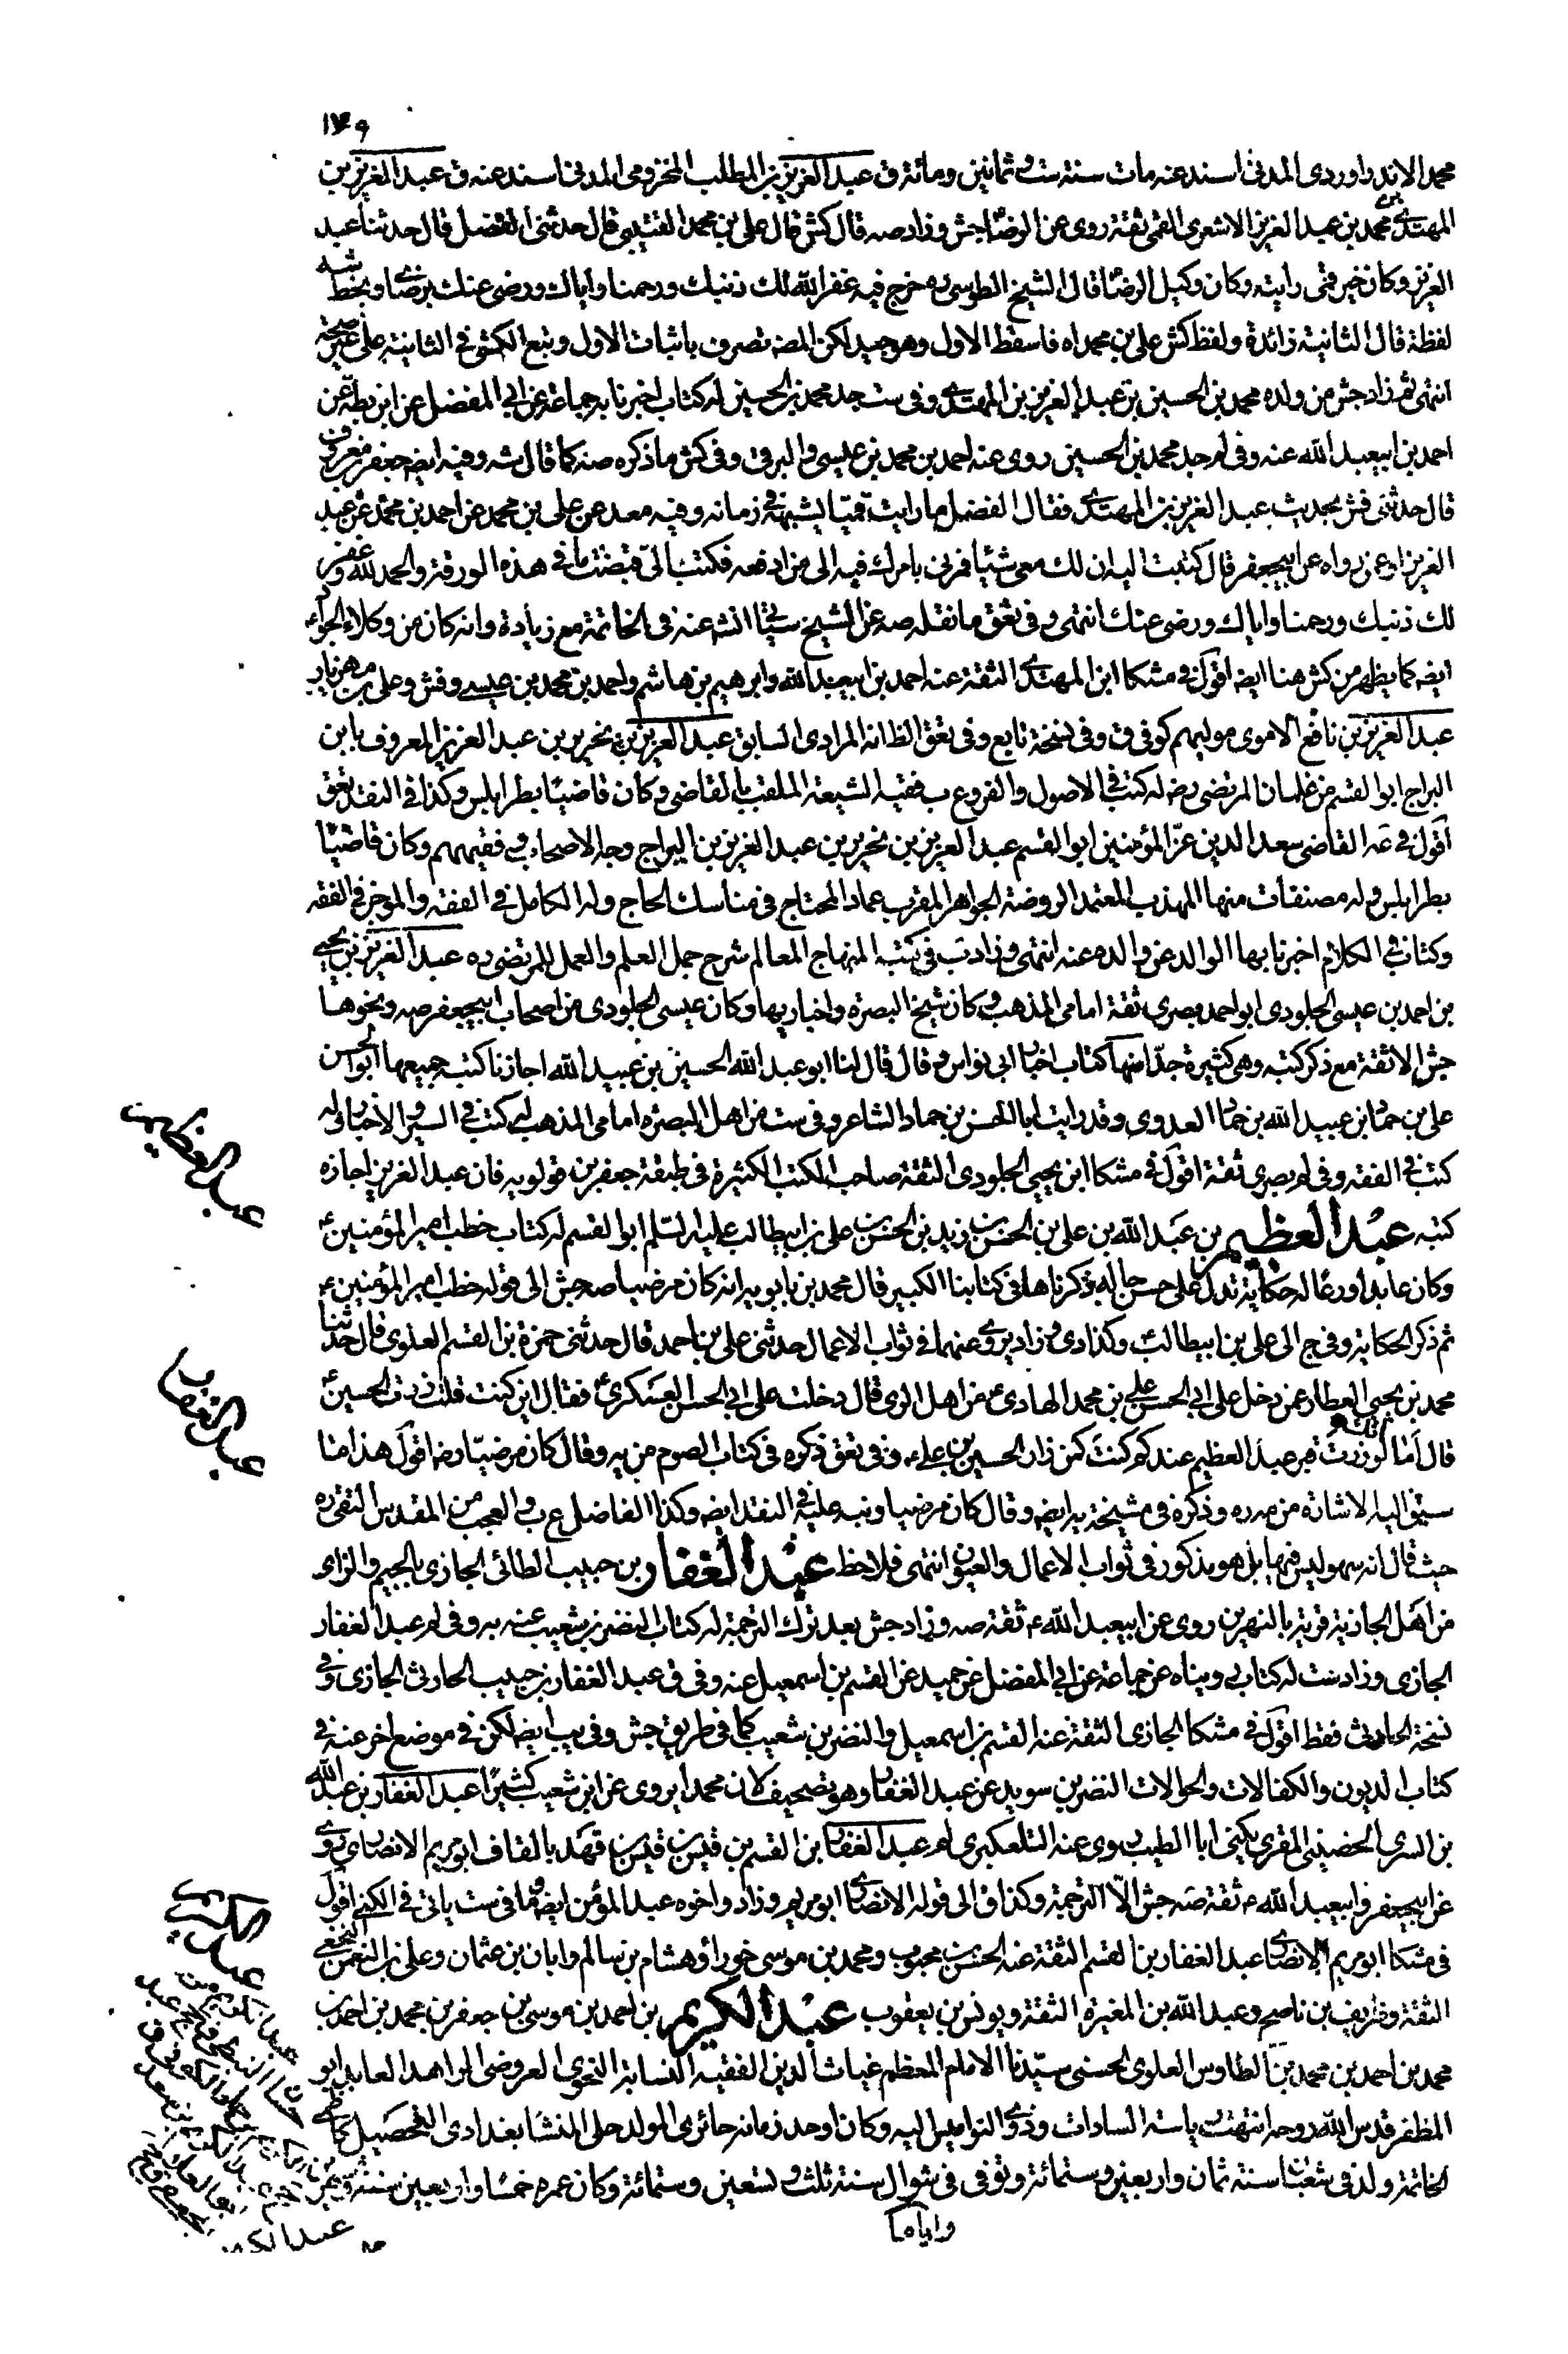 ١٧٩
محمد الاندراوردى المدنى اسند عنه مات سنة ست وثمانين ومائة ق عبد العزيز بن المطلب المخزومى المدنى اسند عنه ق عبد العزيز بن
المهتدى بن محمد بن عبد العزيز الاشعرى القمى ثقة روى عن الرضا جش وزاد صه قال كش قال على بن محمد القتيبى قال حدثنى الفضل قال حدثنا عبد
العزيز وكان خير قمى رايته وكان وكيل الرضا قال الشيخ الطوسى ره خرج فيه غفر الله لك ذنبك ورحمنا واياك ورضى عنك برضاى وبخط شه
لفظة قال الثانية زائدة ولفظ كش على بن محمد اه فاسقط الاول وهو جيد لكن المصه تصرف باثبات الاول وتبع الكشى فى الثانية على غير صحة
انتهى ثم زاد جش من ولده محمد بن الحسين بن عبد العزيز بن المهتدى وفى ست جد محمد بن الحسين له كتاب اخبرنا به جماعة عن ابى المفضل عن ابن بطة عن
احمد بن ابيعبد الله عنه وفى لم جد محمد بن الحسين روى عنه احمد بن محمد بن عيسى والبرقى وفى كش ما ذكره صه كما قال شه وفيه ايضه جعفر بن معروف
قال حدثنى فش بحديث عبد العزيز بن المهتدى فقال الفضل ما رايت قميا يشبهه فى زمانه وفيه معد عن على بن محمد عن احمد بن محمد عن عبد
العزيز او عن رواه عن ابيجعفر قال كتبت اليه ان لك معى شيئا فمرنى بامرك فيه الى من ادفعه فكتب الى قبضت ما فى هذه الورقة والحمد لله وغفر
لك ذنبك ورحمنا واياك ورضى عنك انتهى وفى تعق ما نقله صه عن الشيخ سيتا انشه عنه فى الخاتمة مع زيادة وانه كان من وكلاء الجواد
ايضه كما يظهر من كش هنا ايضه اقول فى مشكا ابن المهتدى الثقة عنه احمد بن ابيعبد الله وابرهيم بن هاشم واحمد بن محمد بن عيسى وفش وعلى بن مهزيار
عبد العزيز بن نافع الاموى موليهم كوفى ق وفى نسخة تابع وفى تعق الظ انه المرادى السابق عبد العزيز بن نحرير بن عبد العزيز المعروف بابن
البراج ابو القسم من غلمان المرتضى رضه له كتب فى الاصول والفروع ب فقيه الشيعة الملقب بالقاضى وكان قاضيا بطرابلس وكذا فى النقد تعق
اقول فى عه القاضى سعد الدين عز المؤمنين ابو القسم عبد العزيز بن نحرير بن عبد العزيز بن البراج وجه الاصحاب وفقيههم وكان قاضيا
بطرابلس وله مصنفات منها المهذب المعتمد الروضة الجواهر المقرب عماد المحتاج فى مناسك الحاج وله الكامل فى الفقه والموجز فى الفقه
وكتاب فى الكلام اخبرنا بها الوالد عن والده عنه انتهى وزاد ب فى كتبه المنهاج المعالم شرح جمل العلم والعمل للمرتضى ره عبد العزيز بن يحيى
بن احمد بن عيسى الجلودى ابو احمد بصرى ثقة امامى المذهب وكان شيخ البصرة واخباريها وكان عيسى الجلودى من اصحاب ابيجعفر صه ونحوها
جش الا ثقة مع ذكر كتبه وهى كثيرة جدا منها كتاب اخبار ابى نواس وقال قال لنا ابو عبد الله الحسين بن عبيد الله اجازنا كتبه جميعها ابو الحسن
على بن حماد بن عبيد الله بن حماد العدوى وقد رايت ابا الحسن بن حماد الشاعر وفى ست من اهل البصرة امامى المذهب له كتب فى السير والاخبار وله
كتب فى الفقه وفى لم بصرى ثقة اقول فى مشكا ابن يحيى الجلودى الثقة صاحب الكتب الكثيرة فى طبقة جعفر بن قولويه فان عبد العزيز اجازه
كتبه عبد العظيم بن عبد الله بن على بن الحسن بن زيد بن الحسن بن على بن ابيطالب عليه السلام ابو القسم له كتاب خطب امير المؤمنين ع
وكان عابدا ورعا له حكاية تدل على حسن حاله ذكرناها فى كتابنا الكبير قال محمد بن بابويه انه كان مرضيا صه جش الى قوله خطب امير المؤمنين ع
ثم ذكر الحكاية وفى ج الى على بن ابيطالب وكذا دى وزاد يروى عنهما فى ثواب الاعمال حدثنى على بن احمد قال حدثنى حمزة بن القسم العلوى قال حدثنا
محمد بن يحيى العطار عمن دخل على ابى الحسن على بن محمد الهادى ع من اهل الرى قال دخلت على ابى الحسن العسكرى ع فقال اين كنت قلت زرت الحسين ع
قال اما انك لو زرت قبر عبد العظيم عندكم كنت كمن زار الحسين بن على ع وفى تعق ذكره فى كتاب الصوم من يه وقال كان مرضيا رضه اقول هذا ما
سبق اليه الاشارة من صه ره وذكره فى مشيخة يه ايضه وقال كان مرضيا ونبه عليه فى النقد ايضه وكذا الفاضل ع ب والعجب من المقدس التقى ره
حيث قال انه سهو ليس فيها بل هو مذكور فى ثواب الاعمال والعيون انتهى فلاحظ عبد الغفار بن حبيب الطائى الجازى بالجيم والزاى
من اهل الجازية قرية بالنهرين روى عن ابيعبد الله ع ثقة صه وزاد جش بعد ترك الترجمة له كتاب النضر بن شعيب عنه به وفى لم عبد الغفار
الجازى وزاد ست له كتاب رويناه عن جماعة عن ابى المفضل عن حميد عن القسم بن اسمعيل عنه وفى ق عبد الغفار بن حبيب الحارثى الجازى وفى
نسخة الحارثى فقط اقول فى مشكا الجازى الثقة عنه القسم بن اسمعيل والنضر بن شعيب كما فى طريق جش وفى يب ايضه لكن فى موضع اخر عنه فى
كتاب الديون والكفالات والحوالات النضر بن سويد عن عبد الغفار وهو تصحيف لان محمدا يروى عن ابن شعيب كثيرا عبد الغفار بن عبد الله
بن السرى الحضينى المقرى يكنى ابا الطيب روى عنه التلعكبرى لم عبد الغفار بن القسم بن قيس بن قيس بن قهد بالقاف ابو مريم الانصارى روى
عن ابيجعفر وابيعبد الله ع ثقة صه جش الا الترجمة وكذا ق الى قوله الانصارى ابو مريم وزاد واخوه عبد المؤمن ايضه وما فى ست ياتى فى الكنى اقول
فى مشكا ابو مريم الانصارى عبد الغفار بن القسم الثقة عنه الحسن بن محبوب ومحمد بن موسى خوراء وهشام بن سالم وابان بن عثمان وعلى بن النعمن النخعى
الثقة وظريف بن ناصح وعبد الله بن المغيرة الثقة ويونس بن يعقوب عبد الكريم بن احمد بن موسى بن جعفر بن محمد بن احمد بن
محمد بن احمد بن محمد بن الطاوس العلوى الحسنى سيدنا الامام المعظم غياث الدين الفقيه النسابة النحوى العروضى الزاهد العابد ابو
المظفر قدس الله روحه انتهت رياسة السادات وذوى النواميس اليه وكان اوحد زمانه حائرى المولد حلى المنشا بغدادى التحصيل كاظمى
الخاتمة ولد فى شعبان سنة ثمان واربعين وستمائة وتوفى فى شوال سنة ثلث وتسعين وستمائة وكان عمره خمسا واربعين سنة
واياما
عبد العظيم
عبد الغفار
عبد الكريم